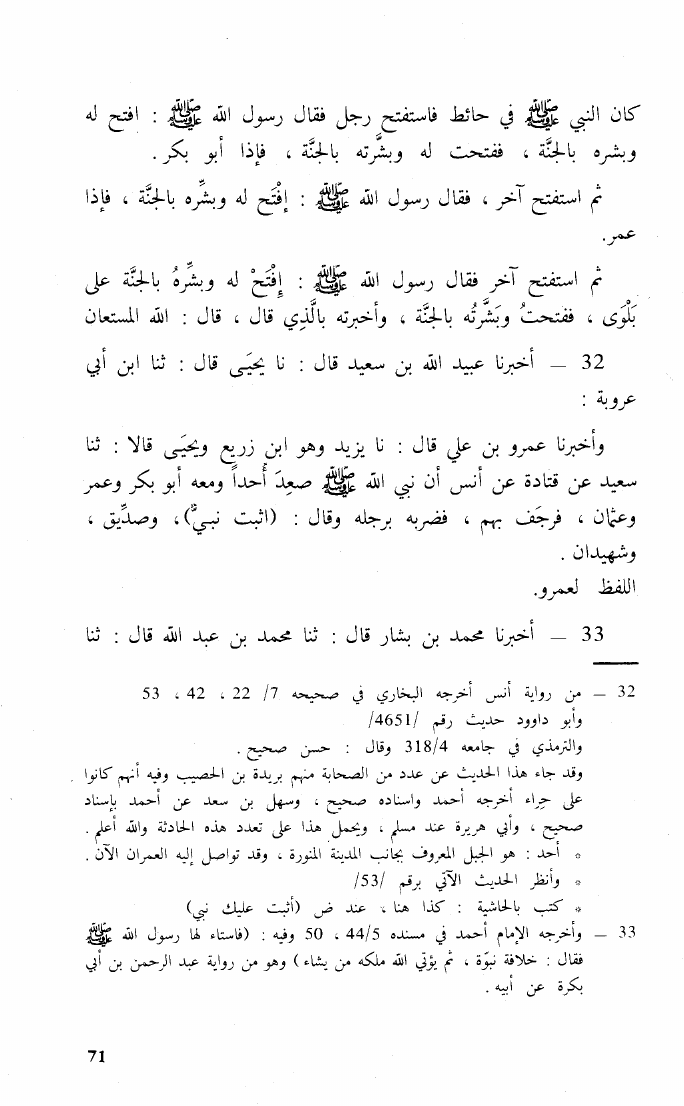 كان النبي ﷺ في حائط فاستفتح رجل فقال رسول الله ﷺ : افتح له
وبشره بالجنَّة ، ففتحت له وبشَّرته بالجنَّة ، فإذا أبو بكر .
ثم استفتح آخر ، فقال رسول الله ﷺ : إفْتَح له وبشِّره بالجنَّة ، فإذا
عمر.
ثم استفتح آخر فقال رسول الله ﷺ : إِفْتَحْ له وبشِّرهُ بالجنَّة على
بَلْوَى ، ففتحتُ وَبَشَّرتُه بالجنَّة ، وأخبرته بالَّذي قال ، قال : الله المستعان
32 – أخبرنا عبيد الله بن سعيد قال : نا يحيَى قال : ثنا ابن أبي
عروبة :
وأخبرنا عمرو بن علي قال : نا يزيد وهو ابن زريع ويحيَى قالا : ثنا
سعيد عن قتادة عن أنس أن نبي الله ﷺ صعِدَ أُحداً ومعه أبو بكر وعمر
وعثمان ، فرجَف بهم ، فضربه برجله وقال : (اثبت نبيٌّ) ، وصدِّيق ،
وشهيدان .
اللفظ لعمرو.
33 – أخبرنا محمد بن بشار قال : ثنا محمد بن عبد الله قال : ثنا
32 – من رواية أنس أخرجه البخاري في صحيحه 7/ 22 ، 42 ، 53
وأبو داوود حديث رقم /4651/
والترمذي في جامعه 318/4 وقال : حسن صحيح .
وقد جاء هذا الحديث عن عدد من الصحابة منهم بريدة بن الحصيب وفيه أنهم كانوا
على حِراء أخرجه أحمد واسناده صحيح ، وسهل بن سعد عن أحمد بإسناد
صحيح ، وأبي هريرة عند مسلم ، ويحمل هذا على تعدد هذه الحادثة والله أعلم .
* أحد : هو الجبل المعروف بجانب المدينة المنورة ، وقد تواصل إليه العمران الآن .
* وأنظر الحديث الآتي برقم /53/
* كتب بالحاشية : كذا هنا ، عند ض (أثبت عليك نبي)
33 – وأخرجه الإمام أحمد في مسنده 44/5 ، 50 وفيه : (فاستاء لها رسول الله ﷺ
فقال : خلافة نبوّة ، ثم يؤتي الله ملكه من يشاء) وهو من رواية عبد الرحمن بن أبي
بكرة عن أبيه .
71